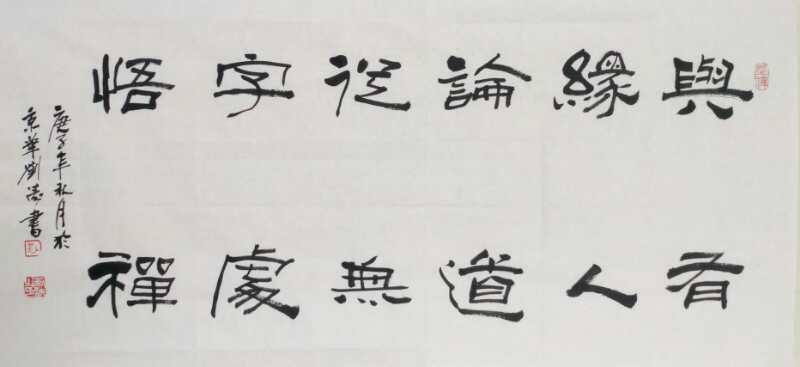 與有
緣人
論道
從無
字處
悟禪
庚子年秋月於
京華劉濤書